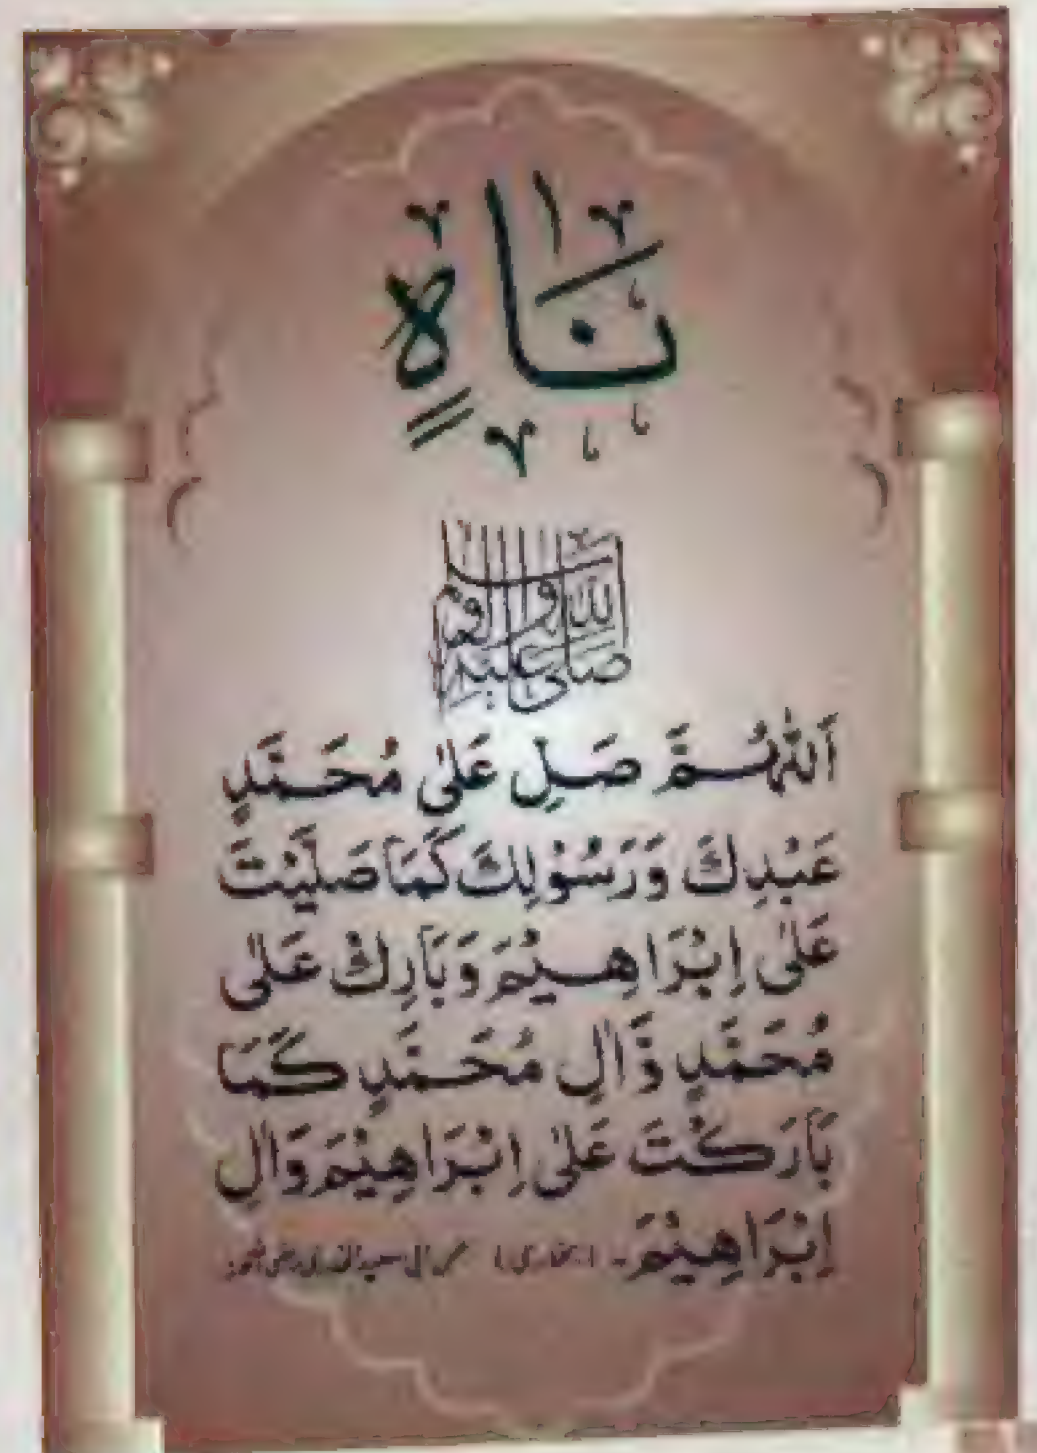 نَاهٍ
صلى الله عليه وآله وسلم
اَللّٰهُمَّ صَلِّ عَلٰى مُحَمَّدٍ
عَبْدِكَ وَرَسُوْلِكَ كَمَا صَلَّيْتَ
عَلٰى اِبْرَاهِيْمَ وَبَارِكْ عَلٰى
مُحَمَّدٍ وَّاٰلِ مُحَمَّدٍ كَمَا
بَارَكْتَ عَلٰى اِبْرَاهِيْمَ وَاٰلِ
اِبْرَاهِيْمَ۔ (بخاری)